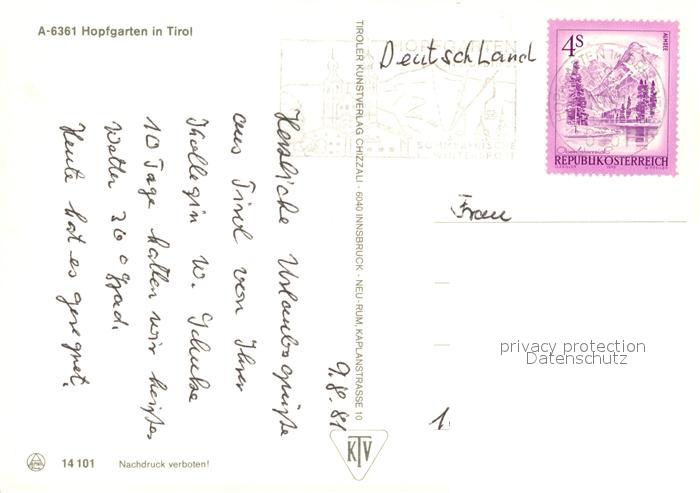 A-6361 Hopfgarten in Tirol
9.8.81
Herzliche Urlaubsgrüße
aus Tirol von Ihrer
Kollegin W. Schulze
10 Tage hatten wir heißes
Wetter 36 Grad.
Heute hat es geregnet.
14 101 Nachdruck verboten!
TIROLER KUNSTVERLAG CHIZZALI · 6040 INNSBRUCK - NEU-RUM, KAPLANSTRASSE 10
KTV
HOPFGARTEN
Deutschland
4S
ALMSEE
REPUBLIK ÖSTERREICH
Frau
privacy protection
Datenschutz
1